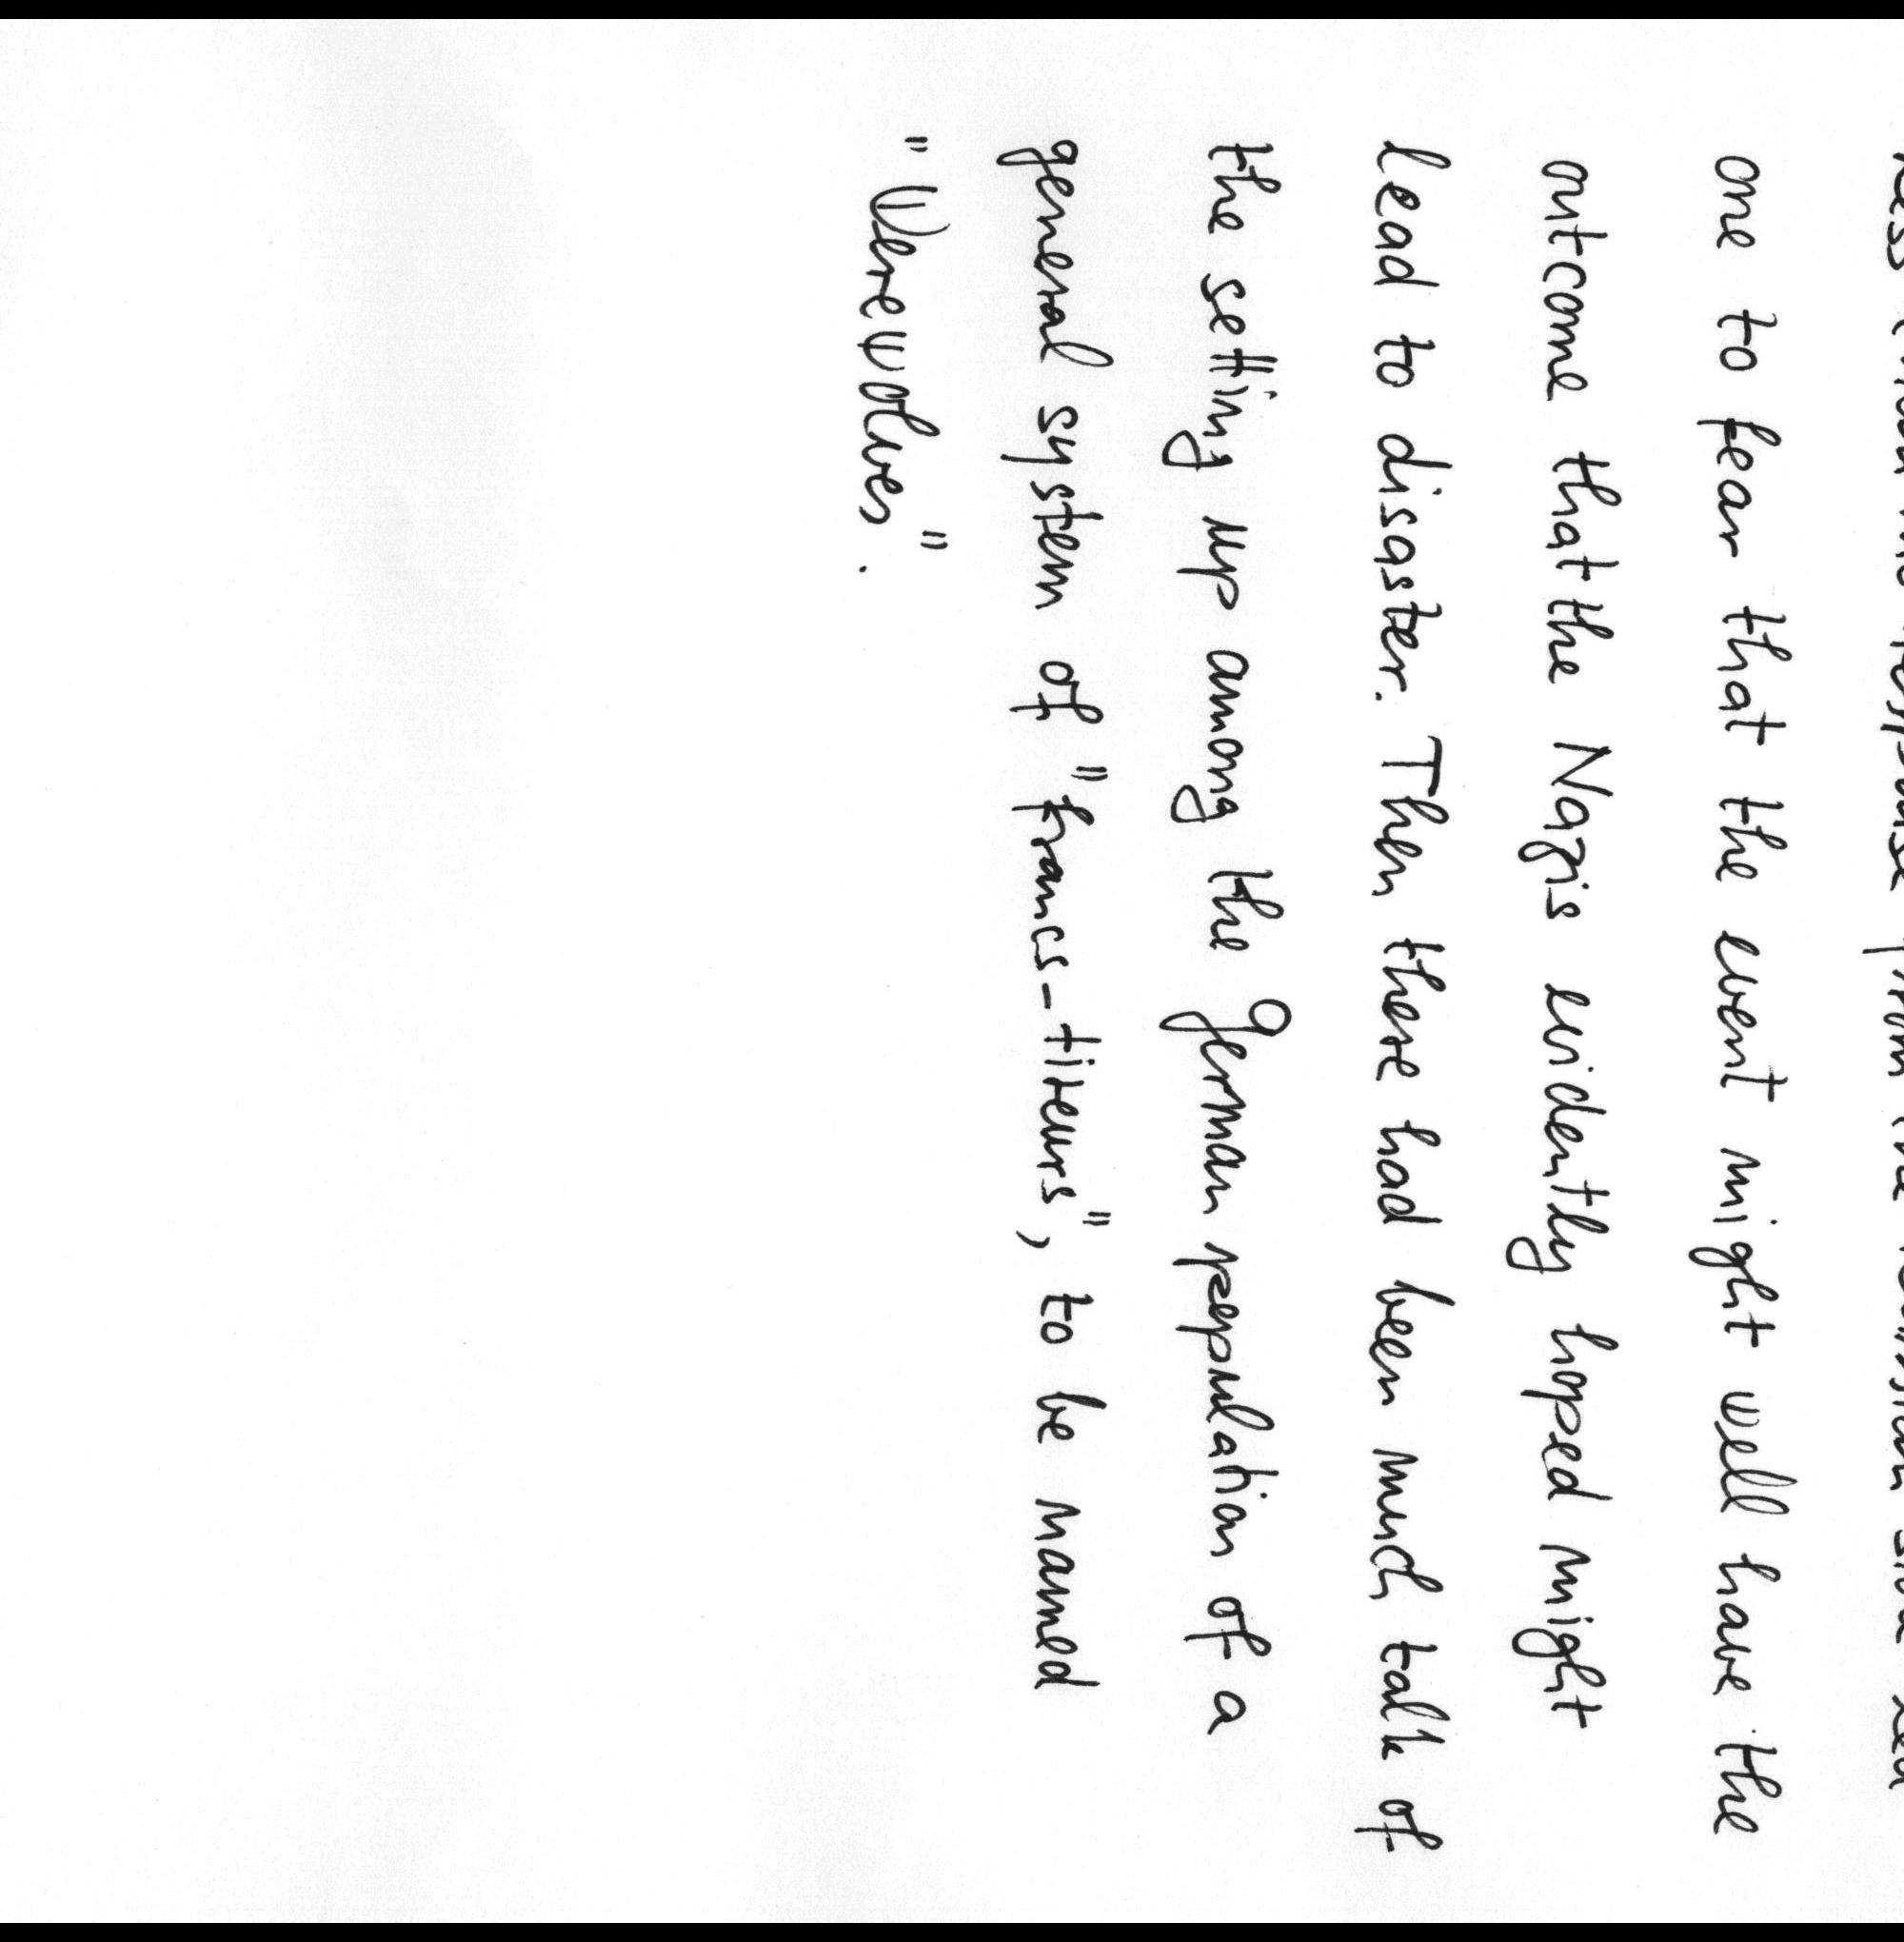 from the
one to fear that the event might well have the
outcome that the Nazis evidently hoped might
lead to disaster. Then there had been much talk of
the setting up among the German population of a
general system of "francs-tireurs", to be named
"Werewolves".